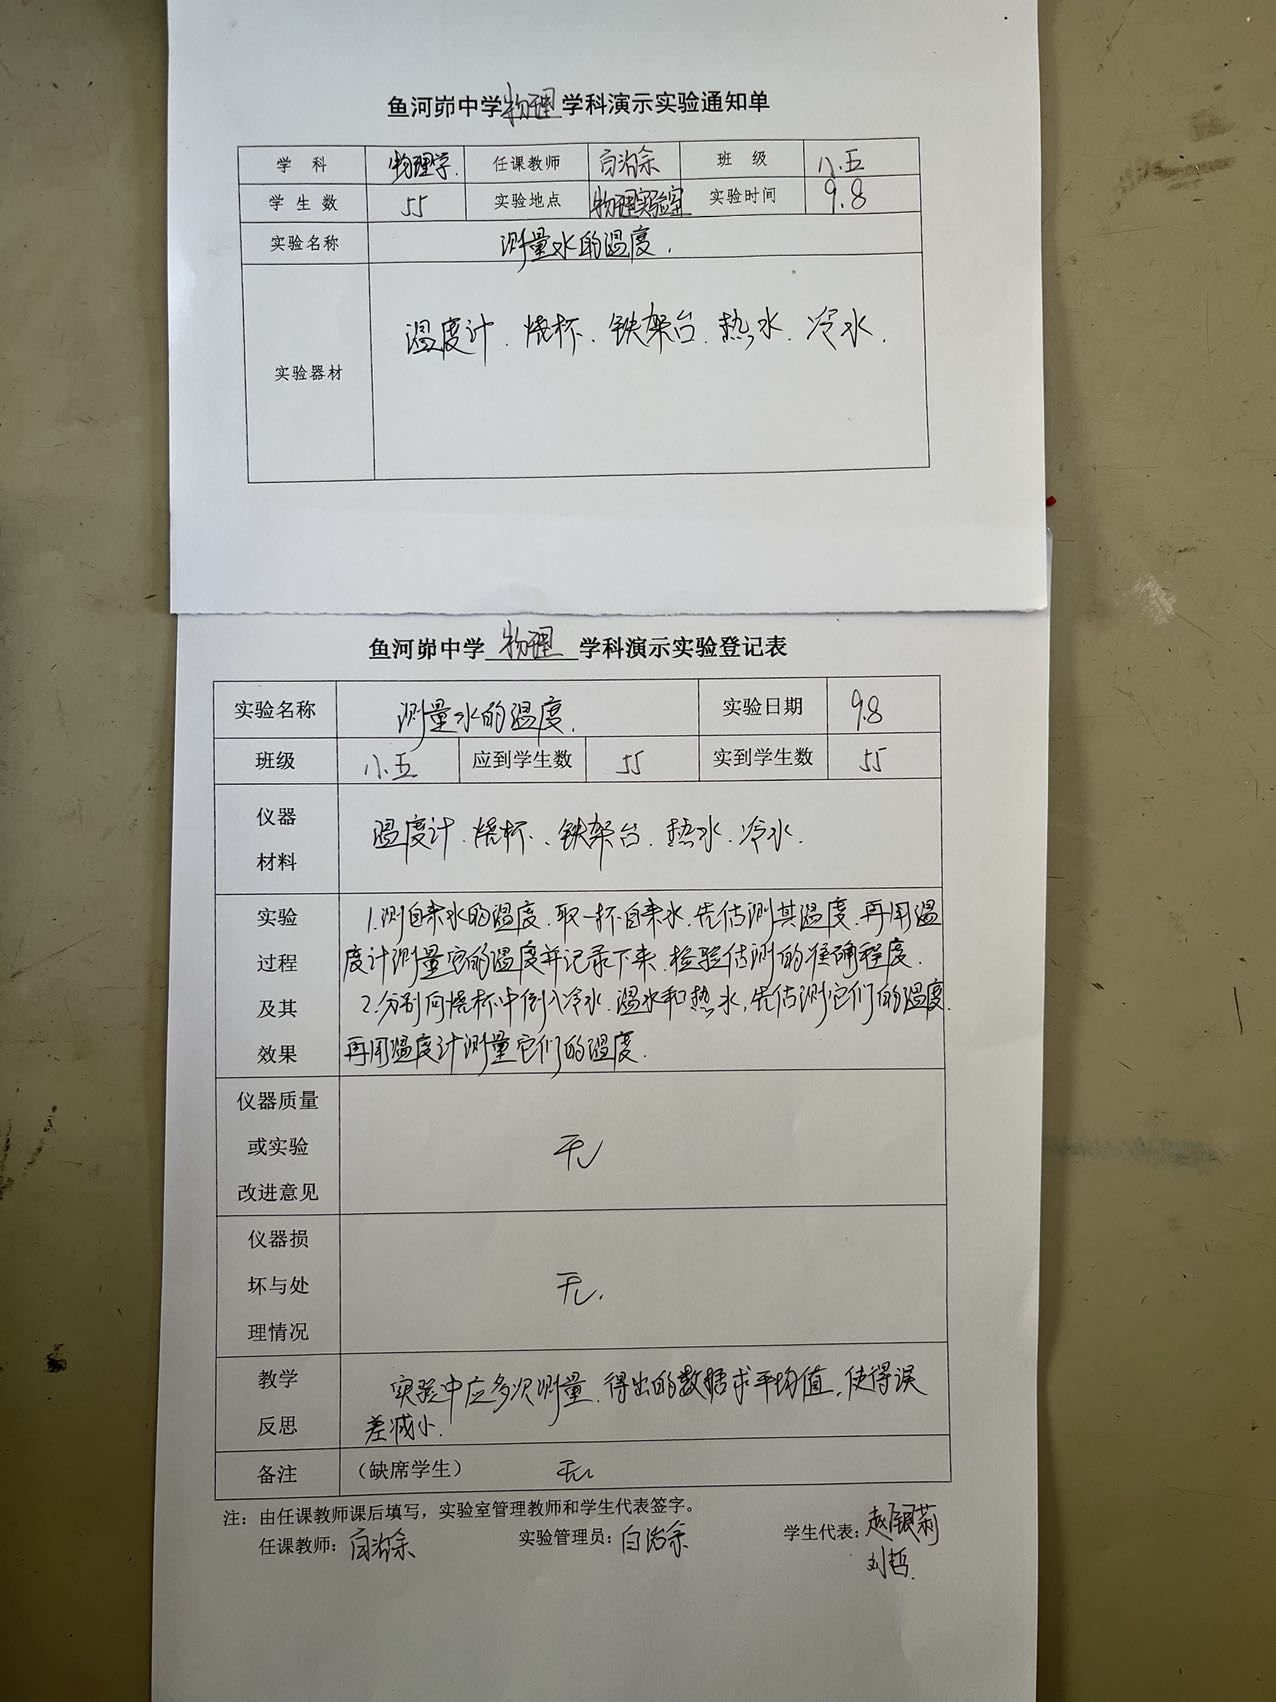 鱼河峁中学物理学科演示实验通知单
学 科 物理学. 任课教师 白治余 班 级 八.五
学 生 数 55 实验地点 物理实验室 实验时间 9.8
实验名称 测量水的温度.
实验器材 温度计.烧杯、铁架台.热水.冷水.
鱼河峁中学 物理 学科演示实验登记表
实验名称 测量水的温度. 实验日期 9.8
班级 八.五 应到学生数 55 实到学生数 55
仪器
材料
温度计.烧杯、铁架台.热水.冷水.
实验
过程
及其
效果
1.测自来水的温度.取一杯自来水,先估测其温度.再用温
度计测量它的温度并记录下来.检验估测的准确程度.
2.分别向烧杯中倒入冷水.温水和热水,先估测它们的温度.
再用温度计测量它们的温度.
仪器质量
或实验
改进意见
无
仪器损
坏与处
理情况
无.
教学
反思
实验中应多次测量.得出的数据求平均值,使得误
差减小.
备注 (缺席学生) 无
注:由任课教师课后填写,实验室管理教师和学生代表签字。
任课教师:白治余 实验管理员:白治余 学生代表:赵银莉
刘哲.